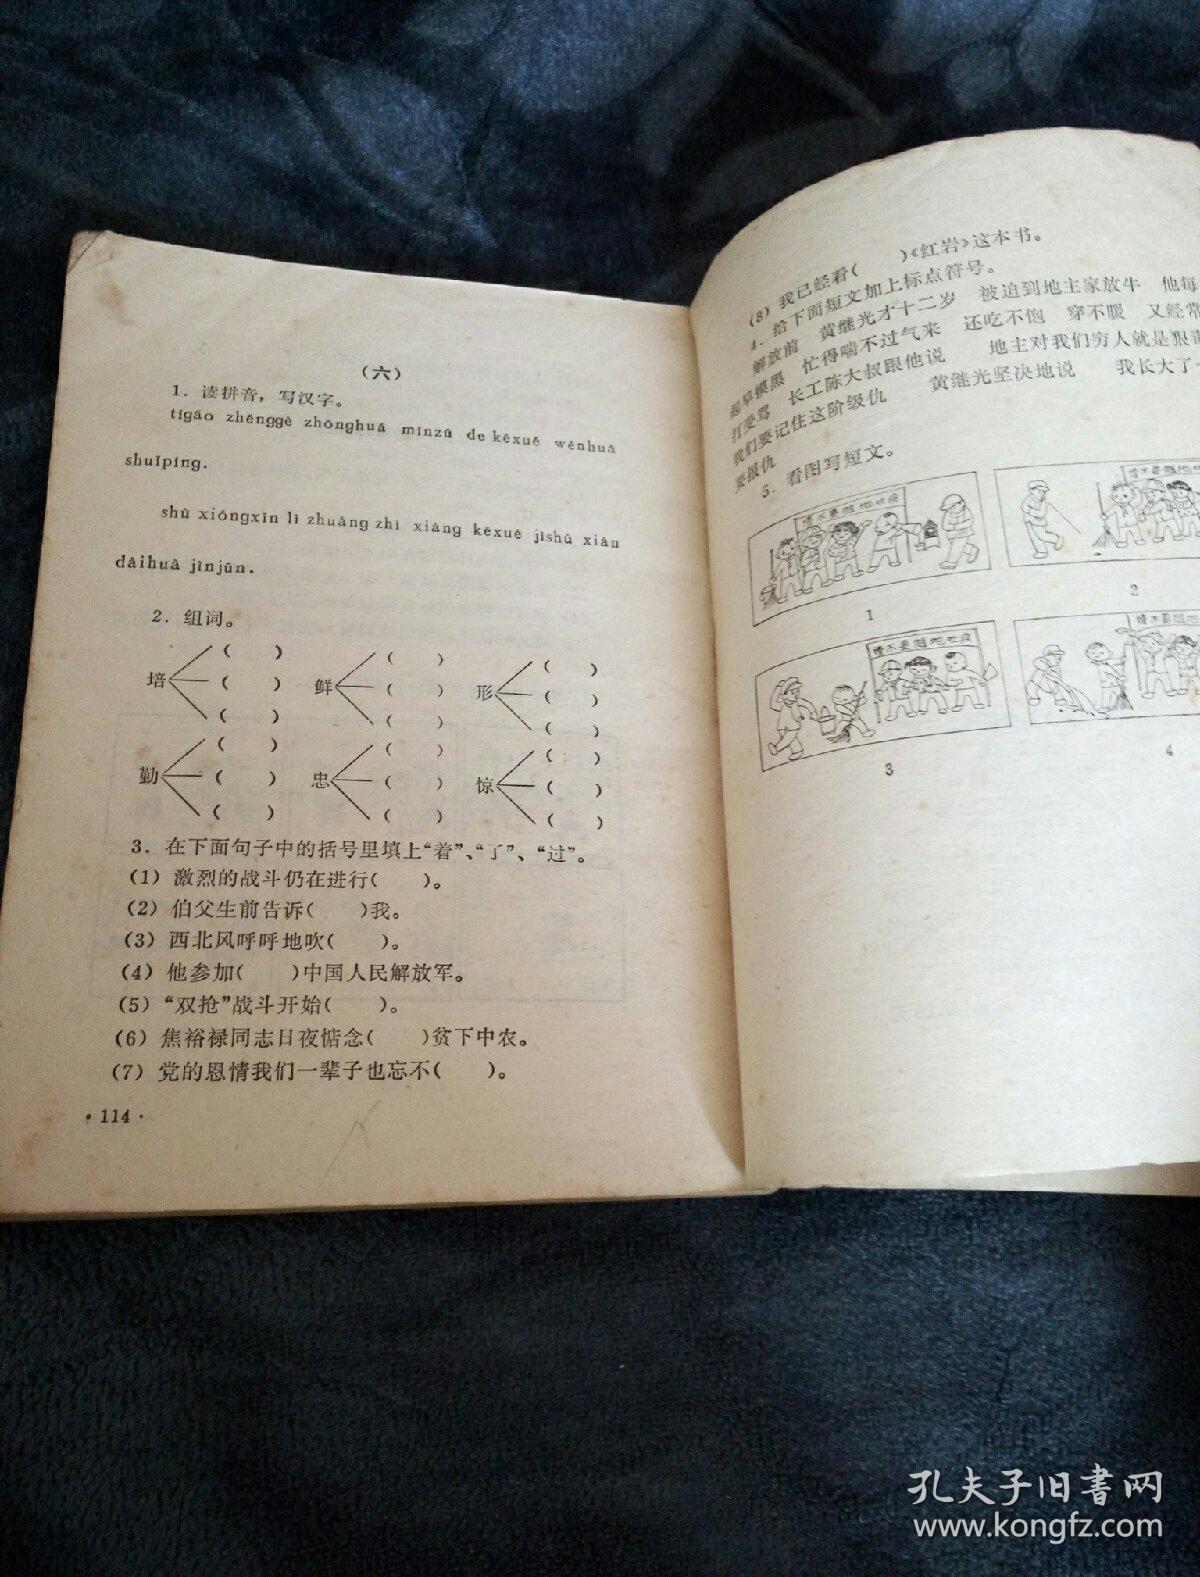 （六）
1．读拼音，写汉字。
tígāo zhěnggè zhōnghuá mínzú de kēxué wénhuà
shuǐpíng.
shù xióngxīn lì zhuàng zhì xiàng kēxué jìshù xiàn
dàihuà jìnjūn.
2．组词。
培 （　） （　） （　）
鲜 （　） （　） （　）
形 （　） （　） （　）
勤 （　） （　） （　）
忠 （　） （　） （　）
惊 （　） （　） （　）
3．在下面句子中的括号里填上“着”、“了”、“过”。
（1）激烈的战斗仍在进行（　　）。
（2）伯父生前告诉（　　）我。
（3）西北风呼呼地吹（　　）。
（4）他参加（　　）中国人民解放军。
（5）“双抢”战斗开始（　　）。
（6）焦裕禄同志日夜惦念（　　）贫下中农。
（7）党的恩情我们一辈子也忘不（　　）。
·114·
（8）我已经看（　　）《红岩》这本书。
4．给下面短文加上标点符号。
解放前　黄继光才十二岁　被迫到地主家放牛　他每
起早摸黑　忙得喘不过气来　还吃不饱　穿不暖　又经常
打受骂　长工陈大叔跟他说　地主对我们穷人就是狠毒
我们要记住这阶级仇　黄继光坚决地说　我长大了
要报仇
5．看图写短文。
请不要随地吐痰
请不要随地吐
1
2
请不要随地吐痰
请不要随地
3
4
孔夫子旧书网
www.kongfz.com